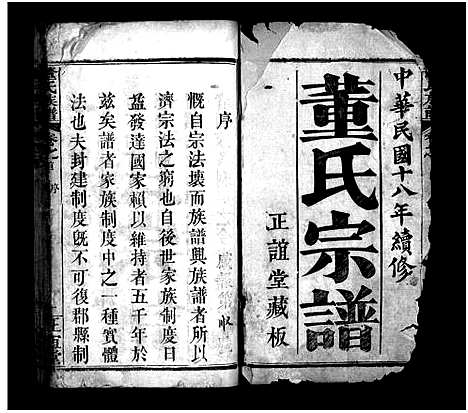 中華民國十八年續修
董氏宗譜
正誼堂藏板
序
慨自宗法壞而族譜興族譜者所以
濟宗法之窮也自後世家族制度日
益發達國家賴以維持者五千年於
茲矣譜者家族制度中之一種實體
法也夫封建制度旣不可復郡縣制